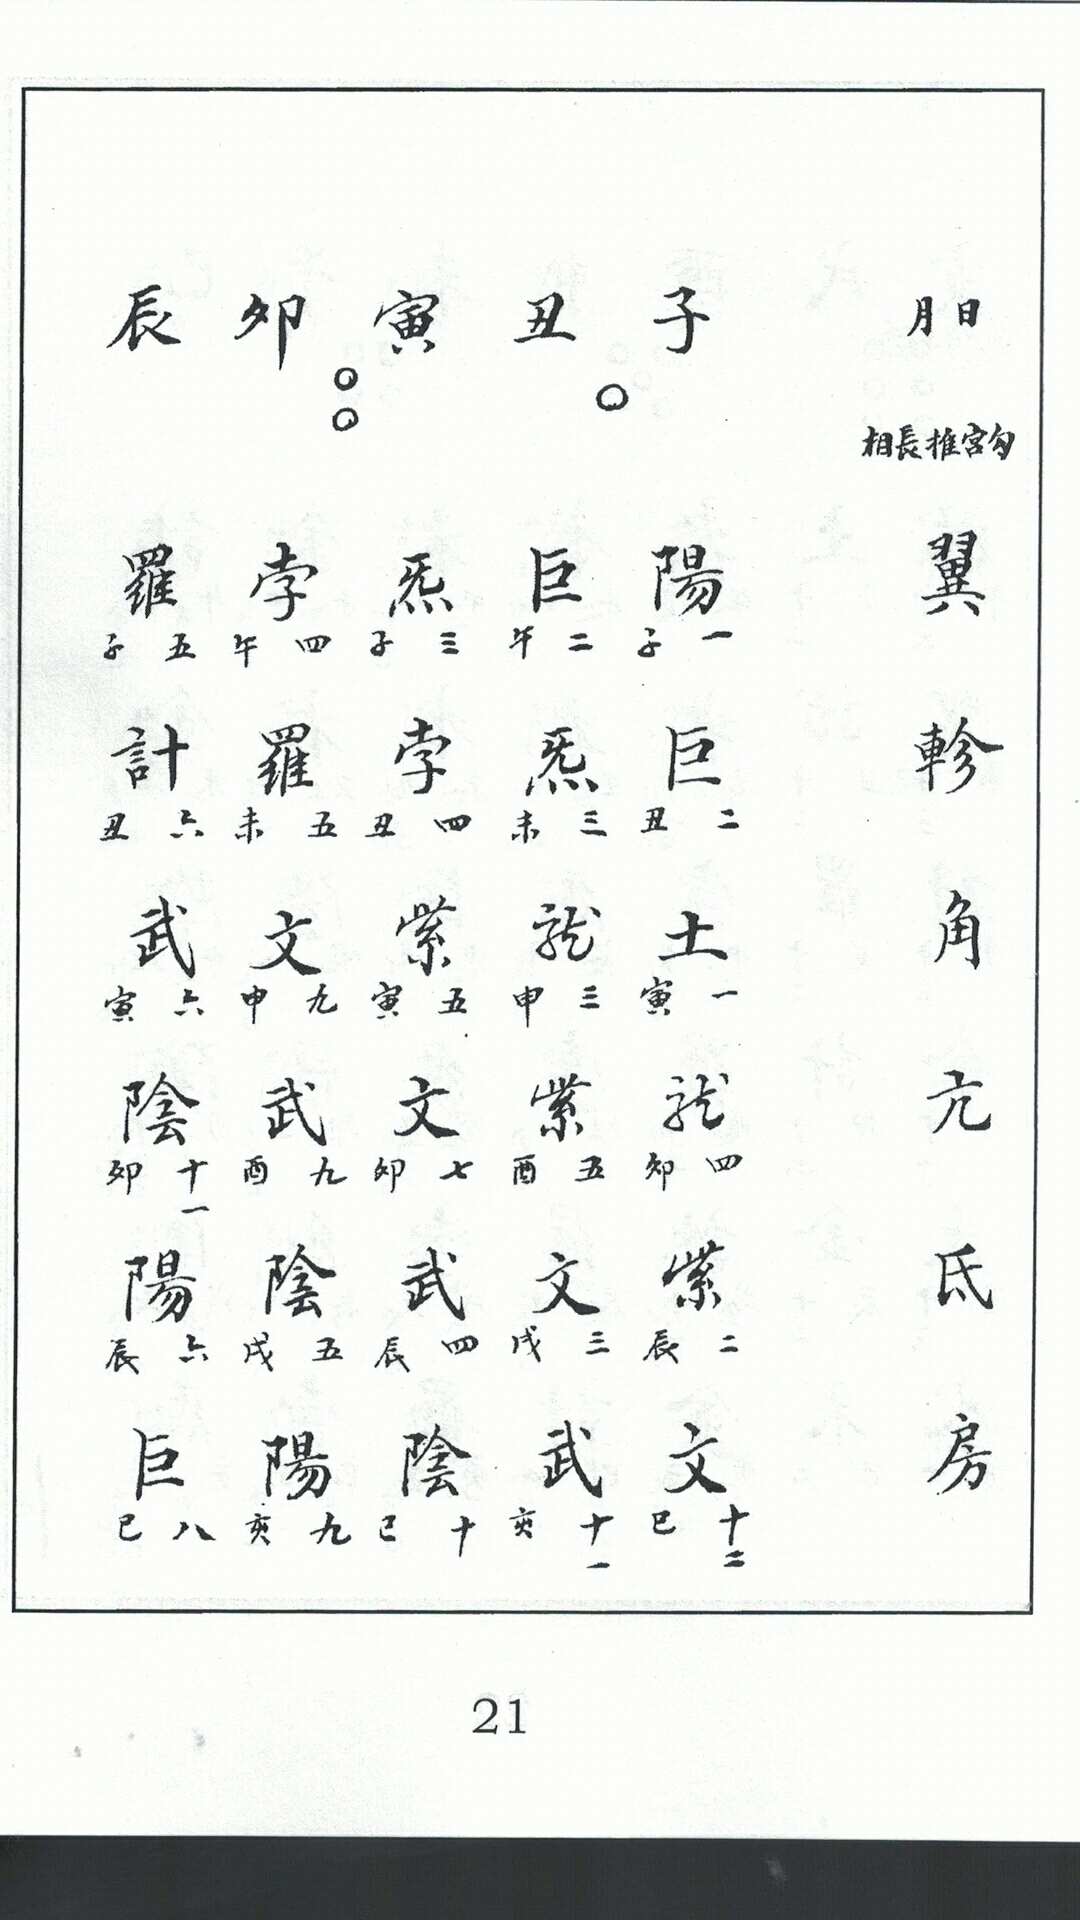 日月
勾宮推長相
翼
軫
角
亢
氐
房
子
陽
一子
巨
二丑
土
一寅
龙
四卯
紫
二辰
文
十二巳
丑
巨
二午
炁
三未
龙
三申
紫
五酉
文
三戌
武
十一亥
寅
炁
三子
孛
四丑
紫
五寅
文
七卯
武
四辰
陰
十巳
卯
孛
四午
羅
五未
文
九申
武
九酉
陰
五戌
陽
九亥
辰
羅
五子
計
六丑
武
六寅
陰
十一卯
陽
六辰
巨
八巳
21